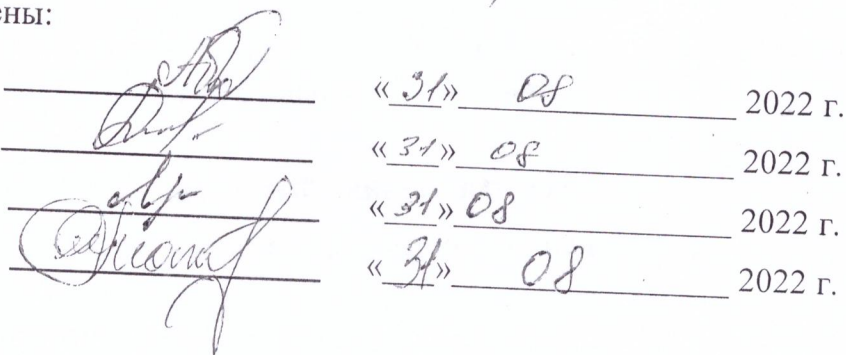 ены:
«31» 08 2022 г.
«31» 08 2022 г.
«31» 08 2022 г.
«31» 08 2022 г.